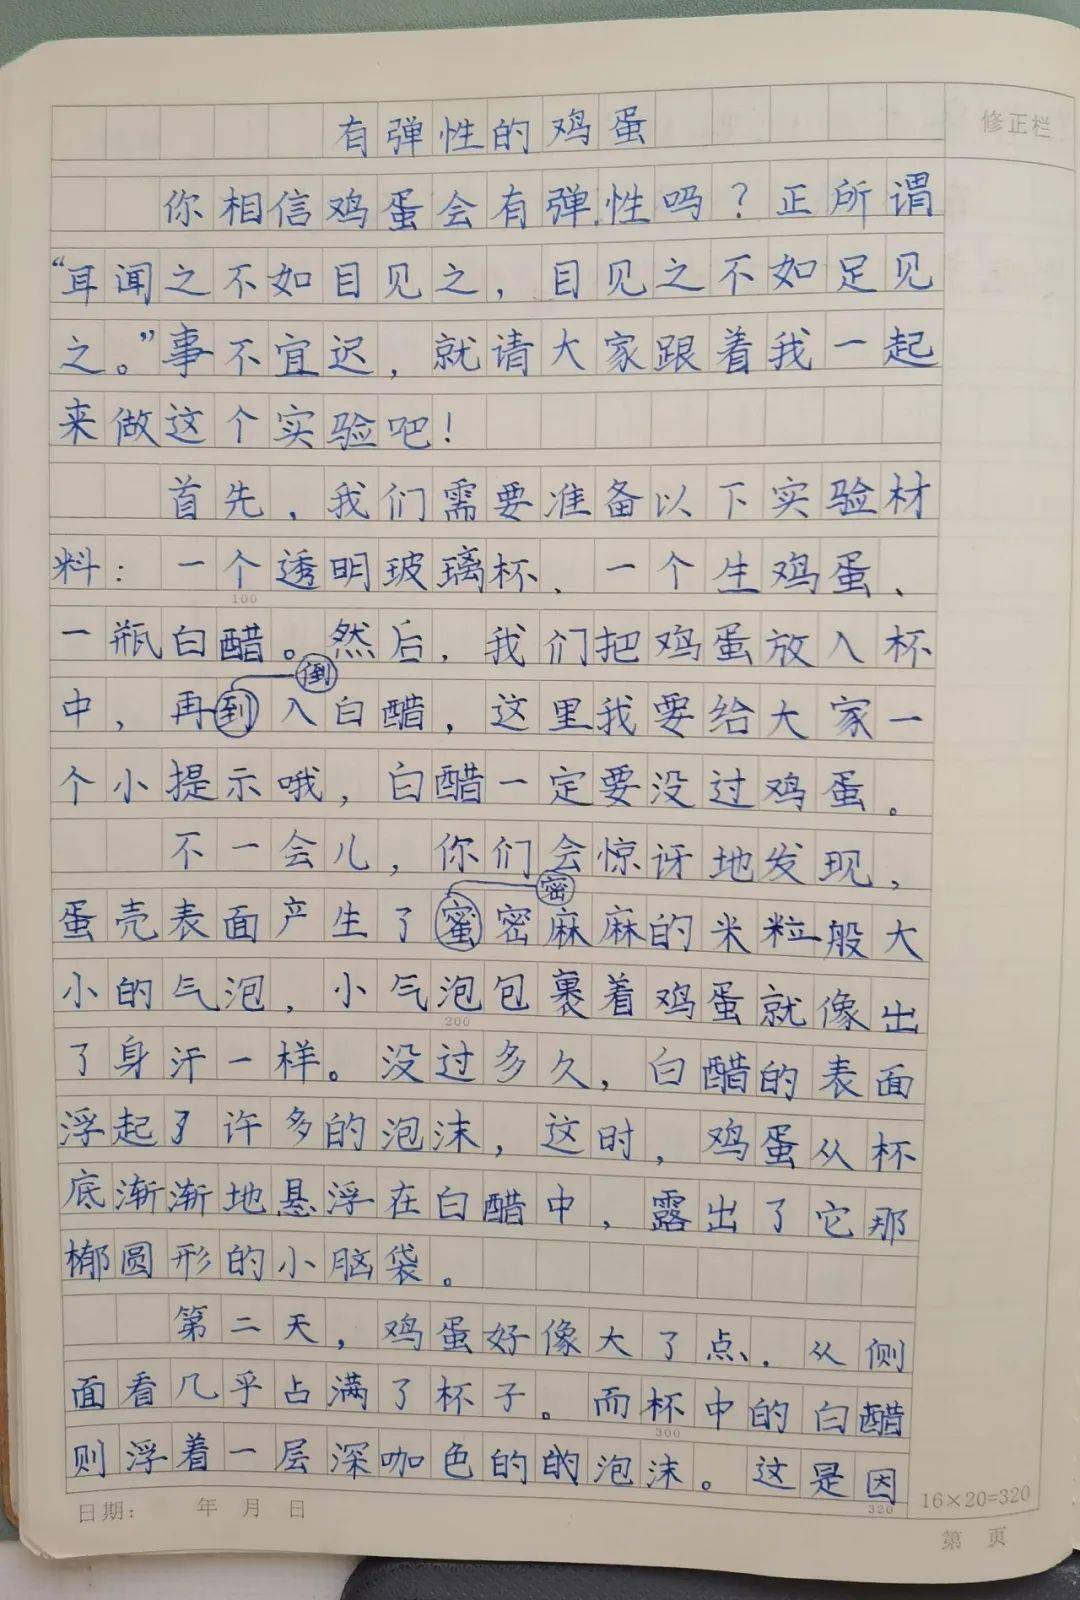 修正栏
有弹性的鸡蛋
你相信鸡蛋会有弹性吗？正所谓
“耳闻之不如目见之，目见之不如足见
之。”事不宜迟，就请大家跟着我一起
来做这个实验吧！
首先，我们需要准备以下实验材
料：一个透明玻璃杯、一个生鸡蛋、
100
一瓶白醋。然后，我们把鸡蛋放入杯
倒
中，再到入白醋，这里我要给大家一
个小提示哦，白醋一定要没过鸡蛋。
不一会儿，你们会惊讶地发现，
密
蛋壳表面产生了蜜密麻麻的米粒般大
小的气泡，小气泡包裹着鸡蛋就像出
200
了身汗一样。没过多久，白醋的表面
浮起了许多的泡沫，这时，鸡蛋从杯
底渐渐地悬浮在白醋中，露出了它那
椭圆形的小脑袋。
第二天，鸡蛋好像大了点，从侧
面看几乎占满了杯子。而杯中的白醋
300
则浮着一层深咖色的的泡沫。这是因
320
16×20=320
日期： 年 月 日
第 页